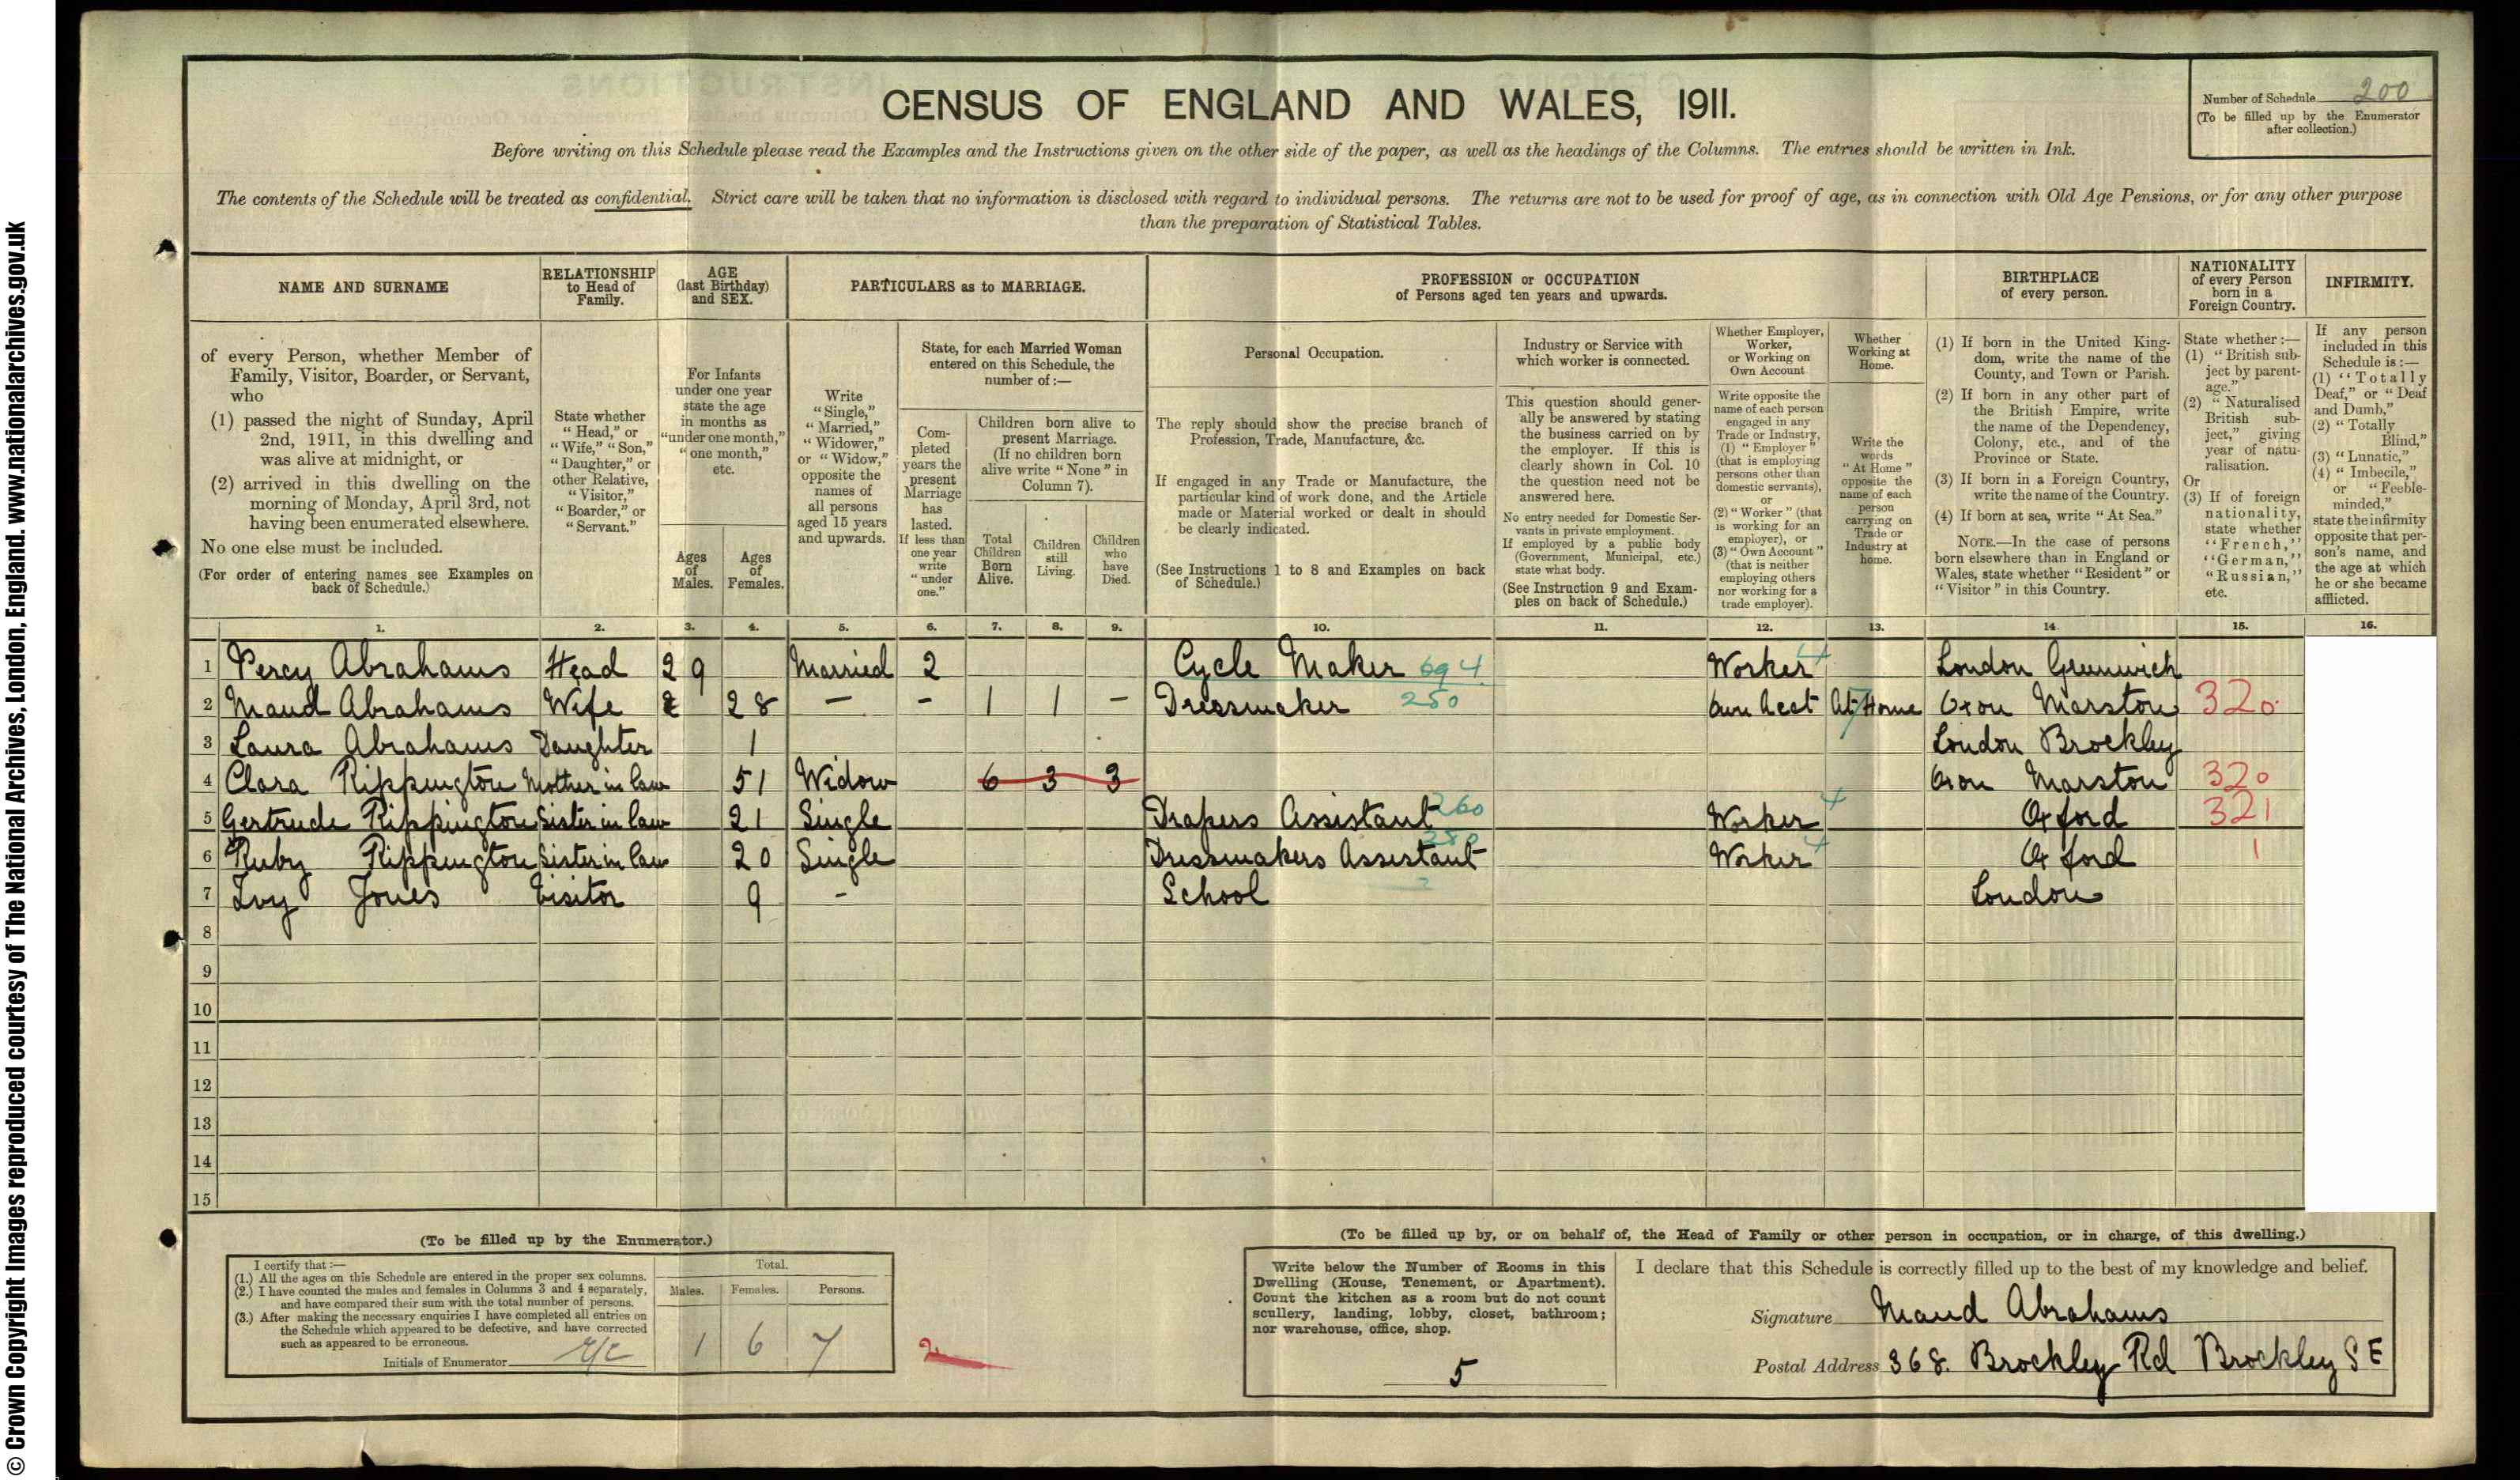 © Crown Copyright Images reproduced courtesy of The National Archives, London, England. www.nationalarchives.gov.uk
CENSUS OF ENGLAND AND WALES, 1911.
Number of Schedule 200
(To be filled up by the Enumerator
after collection.)
Before writing on this Schedule please read the Examples and the Instructions given on the other side of the paper, as well as the headings of the Columns. The entries should be written in Ink.
The contents of the Schedule will be treated as confidential. Strict care will be taken that no information is disclosed with regard to individual persons. The returns are not to be used for proof of age, as in connection with Old Age Pensions, or for any other purpose
than the preparation of Statistical Tables.
NAME AND SURNAME
of every Person, whether Member of
Family, Visitor, Boarder, or Servant,
who
(1) passed the night of Sunday, April
2nd, 1911, in this dwelling and
was alive at midnight, or
(2) arrived in this dwelling on the
morning of Monday, April 3rd, not
having been enumerated elsewhere.
No one else must be included.
(For order of entering names see Examples on
back of Schedule.)
RELATIONSHIP
to Head of
Family.
State whether
"Head," or
"Wife," "Son,"
"Daughter," or
other Relative,
"Visitor,"
"Boarder," or
"Servant."
AGE
(last Birthday)
and SEX.
For Infants
under one year
state the age
in months as
"under one month,"
"one month,"
etc.
Ages
of
Males.
Ages
of
Females.
PARTICULARS as to MARRIAGE.
Write
"Single,"
"Married,"
"Widower,"
or "Widow,"
opposite the
names of
all persons
aged 15 years
and upwards.
State, for each Married Woman
entered on this Schedule, the
number of:—
Com-
pleted
years the
present
Marriage
has
lasted.
If less than
one year
write
"under
one."
Children born alive to
present Marriage.
(If no children born
alive write "None" in
Column 7).
Total
Children
Born
Alive.
Children
still
Living.
Children
who
have
Died.
PROFESSION or OCCUPATION
of Persons aged ten years and upwards.
Personal Occupation.
The reply should show the precise branch of
Profession, Trade, Manufacture, &c.
If engaged in any Trade or Manufacture, the
particular kind of work done, and the Article
made or Material worked or dealt in should
be clearly indicated.
(See Instructions 1 to 8 and Examples on back
of Schedule.)
Industry or Service with
which worker is connected.
This question should gener-
ally be answered by stating
the business carried on by
the employer. If this is
clearly shown in Col. 10
the question need not be
answered here.
No entry needed for Domestic Ser-
vants in private employment.
If employed by a public body
(Government, Municipal, etc.)
state what body.
(See Instruction 9 and Exam-
ples on back of Schedule.)
Whether Employer,
Worker,
or Working on
Own Account
Write opposite the
name of each person
engaged in any
Trade or Industry,
(1) "Employer"
(that is employing
persons other than
domestic servants),
or
(2) "Worker" (that
is working for an
employer), or
(3) "Own Account"
(that is neither
employing others
nor working for a
trade employer).
Whether
Working at
Home.
Write the
words
"At Home"
opposite the
name of each
person
carrying on
Trade or
Industry at
home.
BIRTHPLACE
of every person.
(1) If born in the United King-
dom, write the name of the
County, and Town or Parish.
(2) If born in any other part of
the British Empire, write
the name of the Dependency,
Colony, etc., and of the
Province or State.
(3) If born in a Foreign Country,
write the name of the Country.
(4) If born at sea, write "At Sea."
NOTE.—In the case of persons
born elsewhere than in England or
Wales, state whether "Resident" or
"Visitor" in this Country.
NATIONALITY
of every Person
born in a
Foreign Country.
State whether:—
(1) "British sub-
ject by parent-
age."
(2) "Naturalised
British sub-
ject," giving
year of natu-
ralisation.
Or
(3) If of foreign
nationality,
state whether
"French,"
"German,"
"Russian,"
etc.
INFIRMITY.
If any person
included in this
Schedule is:—
(1) "Totally
Deaf," or "Deaf
and Dumb,"
(2) "Totally
Blind,"
(3) "Lunatic,"
(4) "Imbecile,"
or "Feeble-
minded,"
state the infirmity
opposite that per-
son's name, and
the age at which
he or she became
afflicted.
1. 2. 3. 4. 5. 6. 7. 8. 9. 10. 11. 12. 13. 14. 15. 16.
1 Percy Abrahams Head 29 Married 2 Cycle Maker 694 Worker 4 London Greenwich
2 Maud Abrahams Wife 28 — - 1 1 - Dressmaker 250 Own Acct At Home Oxon Marston 320
3 Laura Abrahams Daughter 1 London Brockley
4 Clara Rippington Mother in law 51 Widow 6 3 3 Oxon Marston 320
5 Gertrude Rippington Sister in law 21 Single Drapers Assistant 260 Worker 4 Oxford 321
6 Ruby Rippington Sister in law 20 Single Dressmakers Assistant 250 Worker 4 Oxford 1
7 Ivy Jones Visitor 9 - School London
8
9
10
11
12
13
14
15
(To be filled up by the Enumerator.)
I certify that:—
(1.) All the ages on this Schedule are entered in the proper sex columns.
(2.) I have counted the males and females in Columns 3 and 4 separately,
and have compared their sum with the total number of persons.
(3.) After making the necessary enquiries I have completed all entries on
the Schedule which appeared to be defective, and have corrected
such as appeared to be erroneous.
Initials of Enumerator
Total.
Males. Females. Persons.
1 6 7
2
(To be filled up by, or on behalf of, the Head of Family or other person in occupation, or in charge, of this dwelling.)
Write below the Number of Rooms in this
Dwelling (House, Tenement, or Apartment).
Count the kitchen as a room but do not count
scullery, landing, lobby, closet, bathroom;
nor warehouse, office, shop.
5
I declare that this Schedule is correctly filled up to the best of my knowledge and belief.
Signature Maud Abrahams
Postal Address 368. Brockley Rd Brockley S E